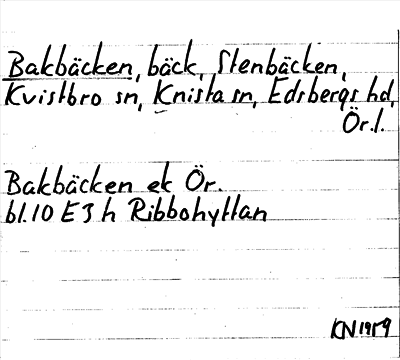 Bakbäcken, bäck, Stenbäcken,
Kvistbro sn, Knista sn, Edsbergs hd,
Ör.l.
Bakbäcken ek Ör.
bl.10 E3h Ribbohyttan
KN 1959